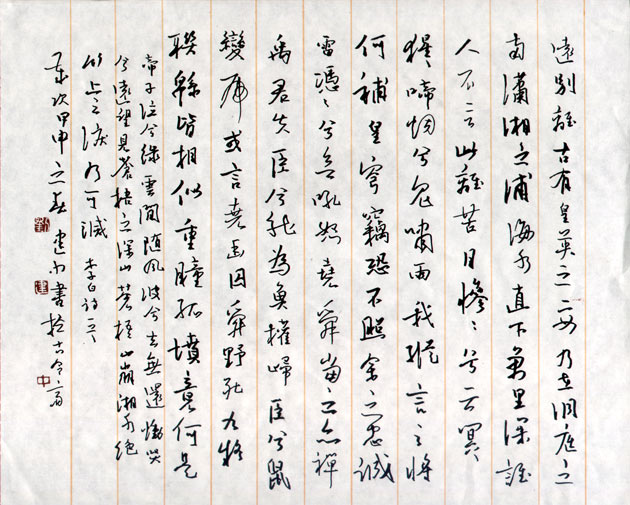 遠別離古有皇英之二女乃在洞庭之
南瀟湘之浦海水直下萬里深誰
人不言此離苦日慘〻兮云冥〻
猩〻啼烟兮鬼嘯雨我縱言之將
何補皇穹竊恐不照余之忠誠
雷憑〻兮欲吼怒堯舜當之亦禪
禹君失臣兮龍為魚權歸臣兮鼠
變虎或言堯幽囚舜野死九疑
聯緜皆相似重瞳孤墳竟何是
帝子泣兮綠雲間隨風波兮去無還慟哭
兮遠望見蒼梧之深山蒼梧山崩湘水絕
竹上之淚乃可滅 李白詩一首
歲次甲申之春 建 書於古今齋